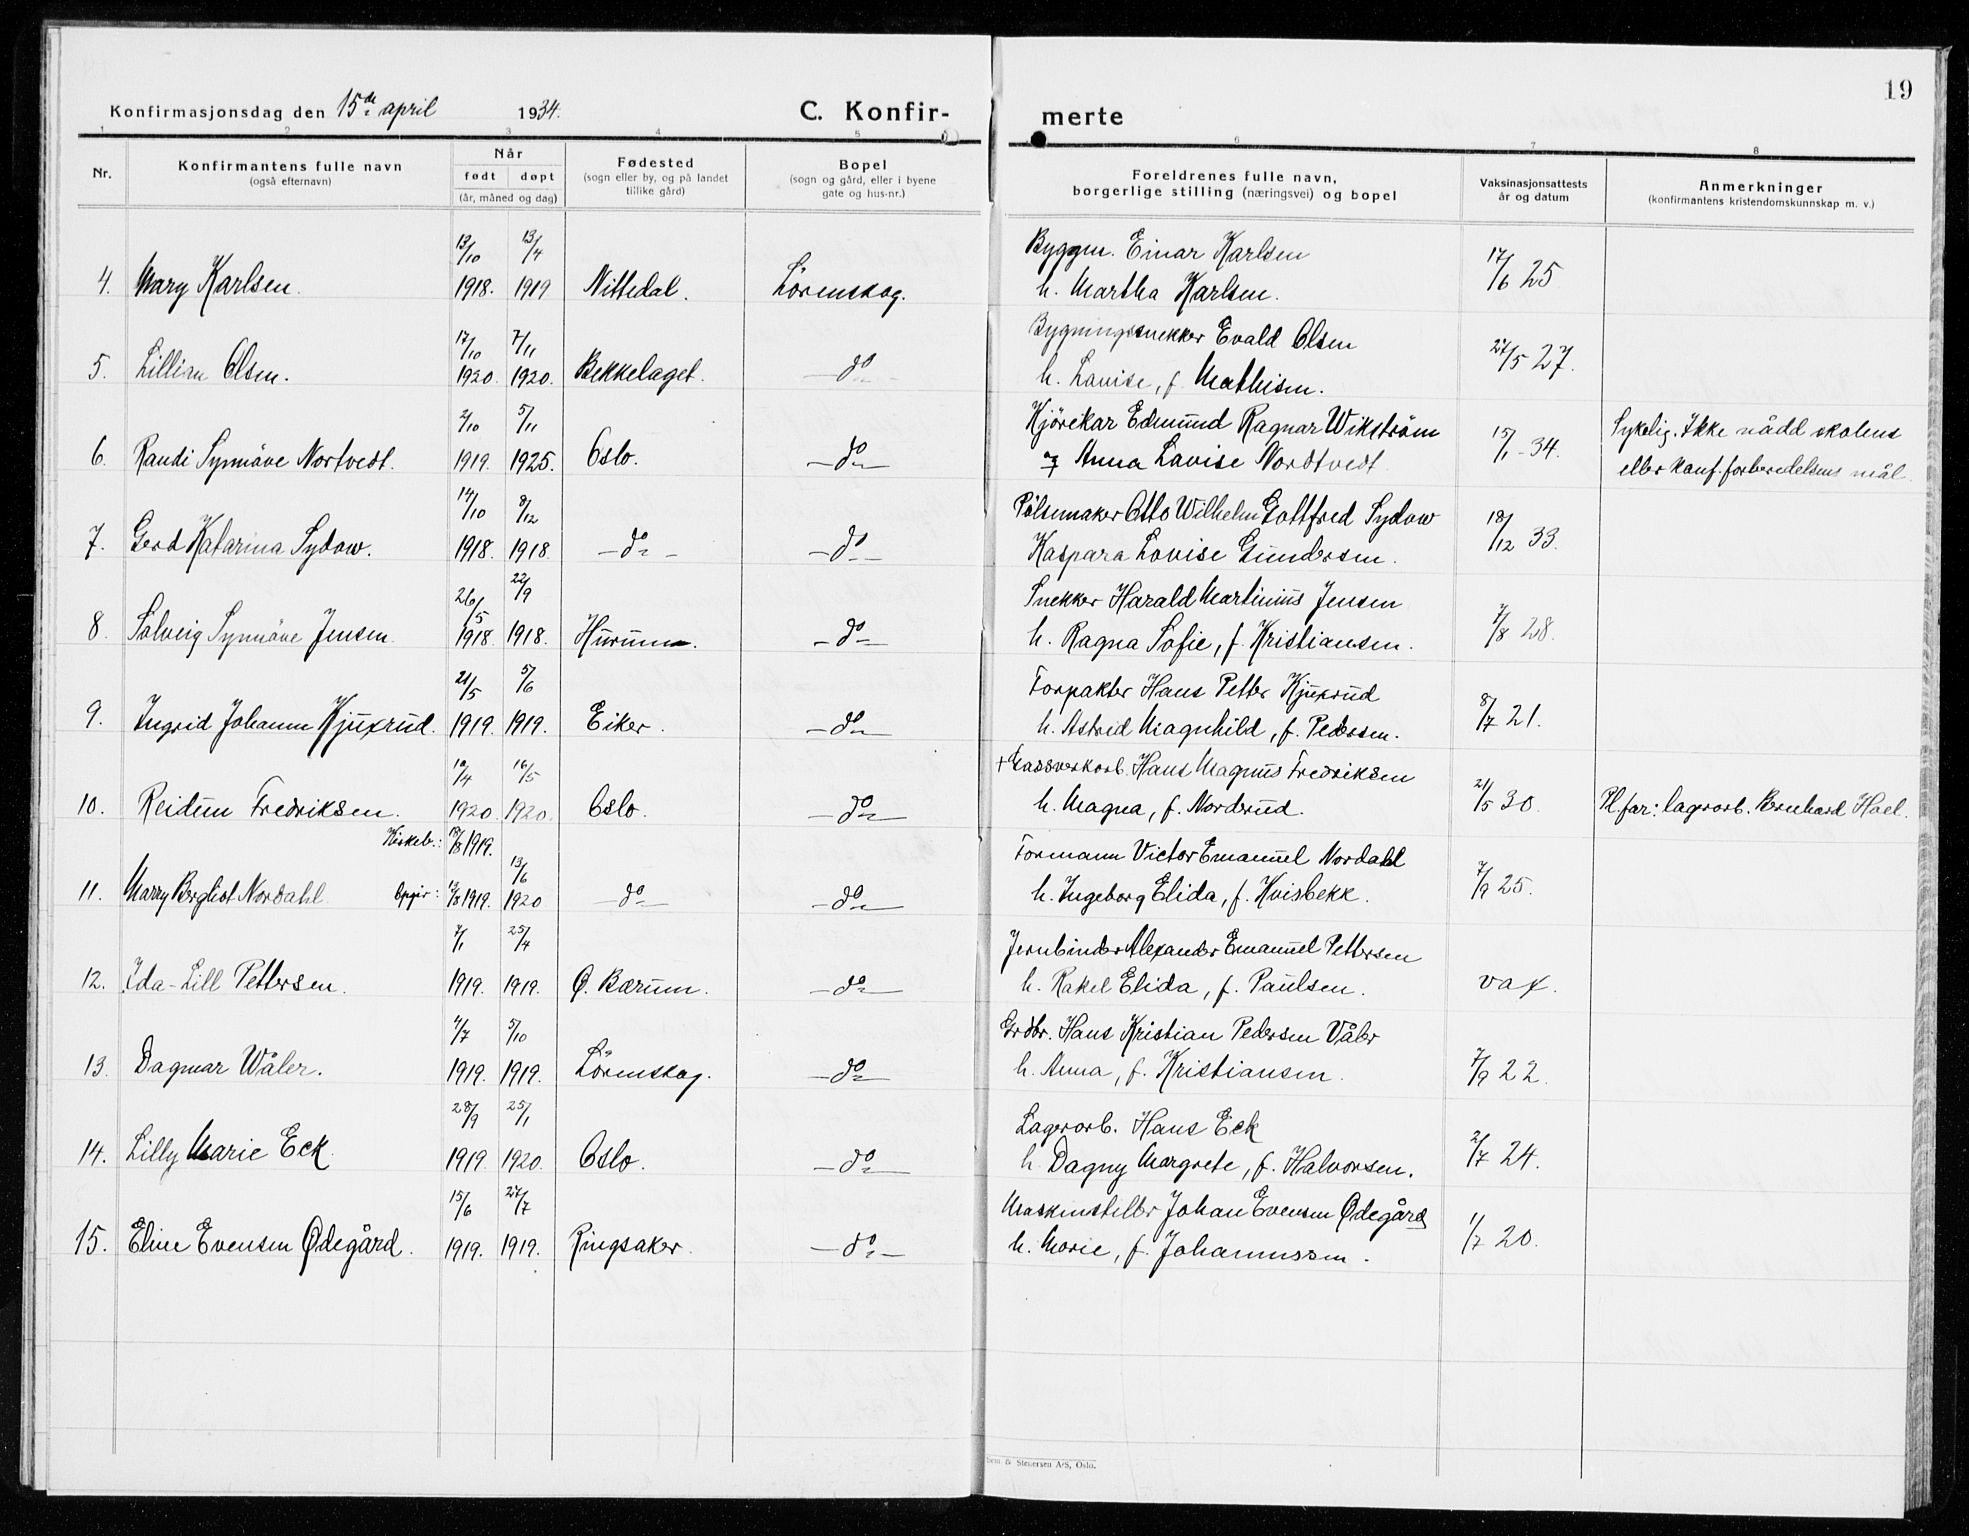 19
Konfirmasjonsdag den 15de april 1934. C. Konfir-merte
1 2 3 4 5 6 7 8
Nr. Konfirmantens fulle navn (også efternavn) Når født døpt (år, måned og dag) Fødested (sogn eller by, og på landet tillike gård) Bopel (sogn og gård, eller i byene gate og hus-nr.) Foreldrenes fulle navn, borgerlige stilling (næringsvei) og bopel Vaksinasjonsattests år og datum Anmerkninger (konfirmantens kristendomskunnskap m. v.)
13/10 13/4 Byggm. Einar Karlsen 17/6 25
4. Mary Karlsen. 1918. 1919 Nittedal. Lørenskog. h. Martha Karlsen.
17/10 7/11 Bygningssnekker Evald Olsen 27/5 27.
5. Lillian Olsen. 1920. 1920. Bekkelaget. —do— h. Lovise, f. Mathisen.
2/10 5/11 Kjörekar Edmund Ragnar Wikström 15/1-34. Sykelig. Ikke nådd skolens
6. Randi Synnöve Nortvedt. 1919. 1925. Oslo. —do— og Anna Lovise Nordtvedt eller konf. forberedelsens mål.
14/10 8/12 Pölsemaker Otto Wilhelm Gottfred Sydow 18/12 33.
7. Gerd Katarina Sydow. 1918. 1918. —do— —do— Kaspara Lovise Gundersen.
26/5 22/9 Snekker Harald Martinius Jensen 7/8 28.
8. Solveig Synnöve Jensen 1918. 1918. Hurum. —do— h. Ragna Sofie, f. Kristiansen.
21/5 5/6 Forpakter Hans Petter Kjuxrud 8/7 21.
9. Ingrid Johanne Kjuxrud. 1919. 1919. Eiker. —do— h. Astrid Magnhild, f. Pedersen.
10/4 16/5 + Gassverkarb. Hans Magnus Fredriksen 21/5 30.
10. Reidun Fredriksen. 1920. 1920. Oslo. —do— h. Magna, f. Norderud. Pl.far: lagerarb. Bernhard Hoel.
Kirkeb.: 1919. 13/6 Formann Victor Emanuel Nordahl 7/9 25.
11. Marry Bergliot Nordahl Opgir: 1919. 1920 —do— —do— h. Ingeborg Elida, f. Kvisbekk.
7/1 25/4 Jernbinder Alexander Emanuel Pettersen
12. Ida-Lill Pettersen. 1919. 1919. Ø. Bærum. —do— h. Rakel Elida, f. Paulsen. vax.
4/7 5/10 Grdbr. Hans Kristian Pedersen Våler 7/9 22.
13. Dagmar Wåler. 1919. 1919. Lörenskog. —do— h. Anna, f. Kristiansen.
28/9 25/1 Lagerarb. Hans Eck 2/7 24.
14. Lilly Marie Eck. 1919 1920. Oslo. —do— h. Dagny Margrete, f. Halvorsen.
15/6 27/7 Maskinstiller Johan Evensen Ødegård 1/7 20.
15. Eline Evensen Ødegård. 1919. 1919. Ringsaker. —do— h. Marie, f. Johannessen.
& Stenersen A/S, Oslo.